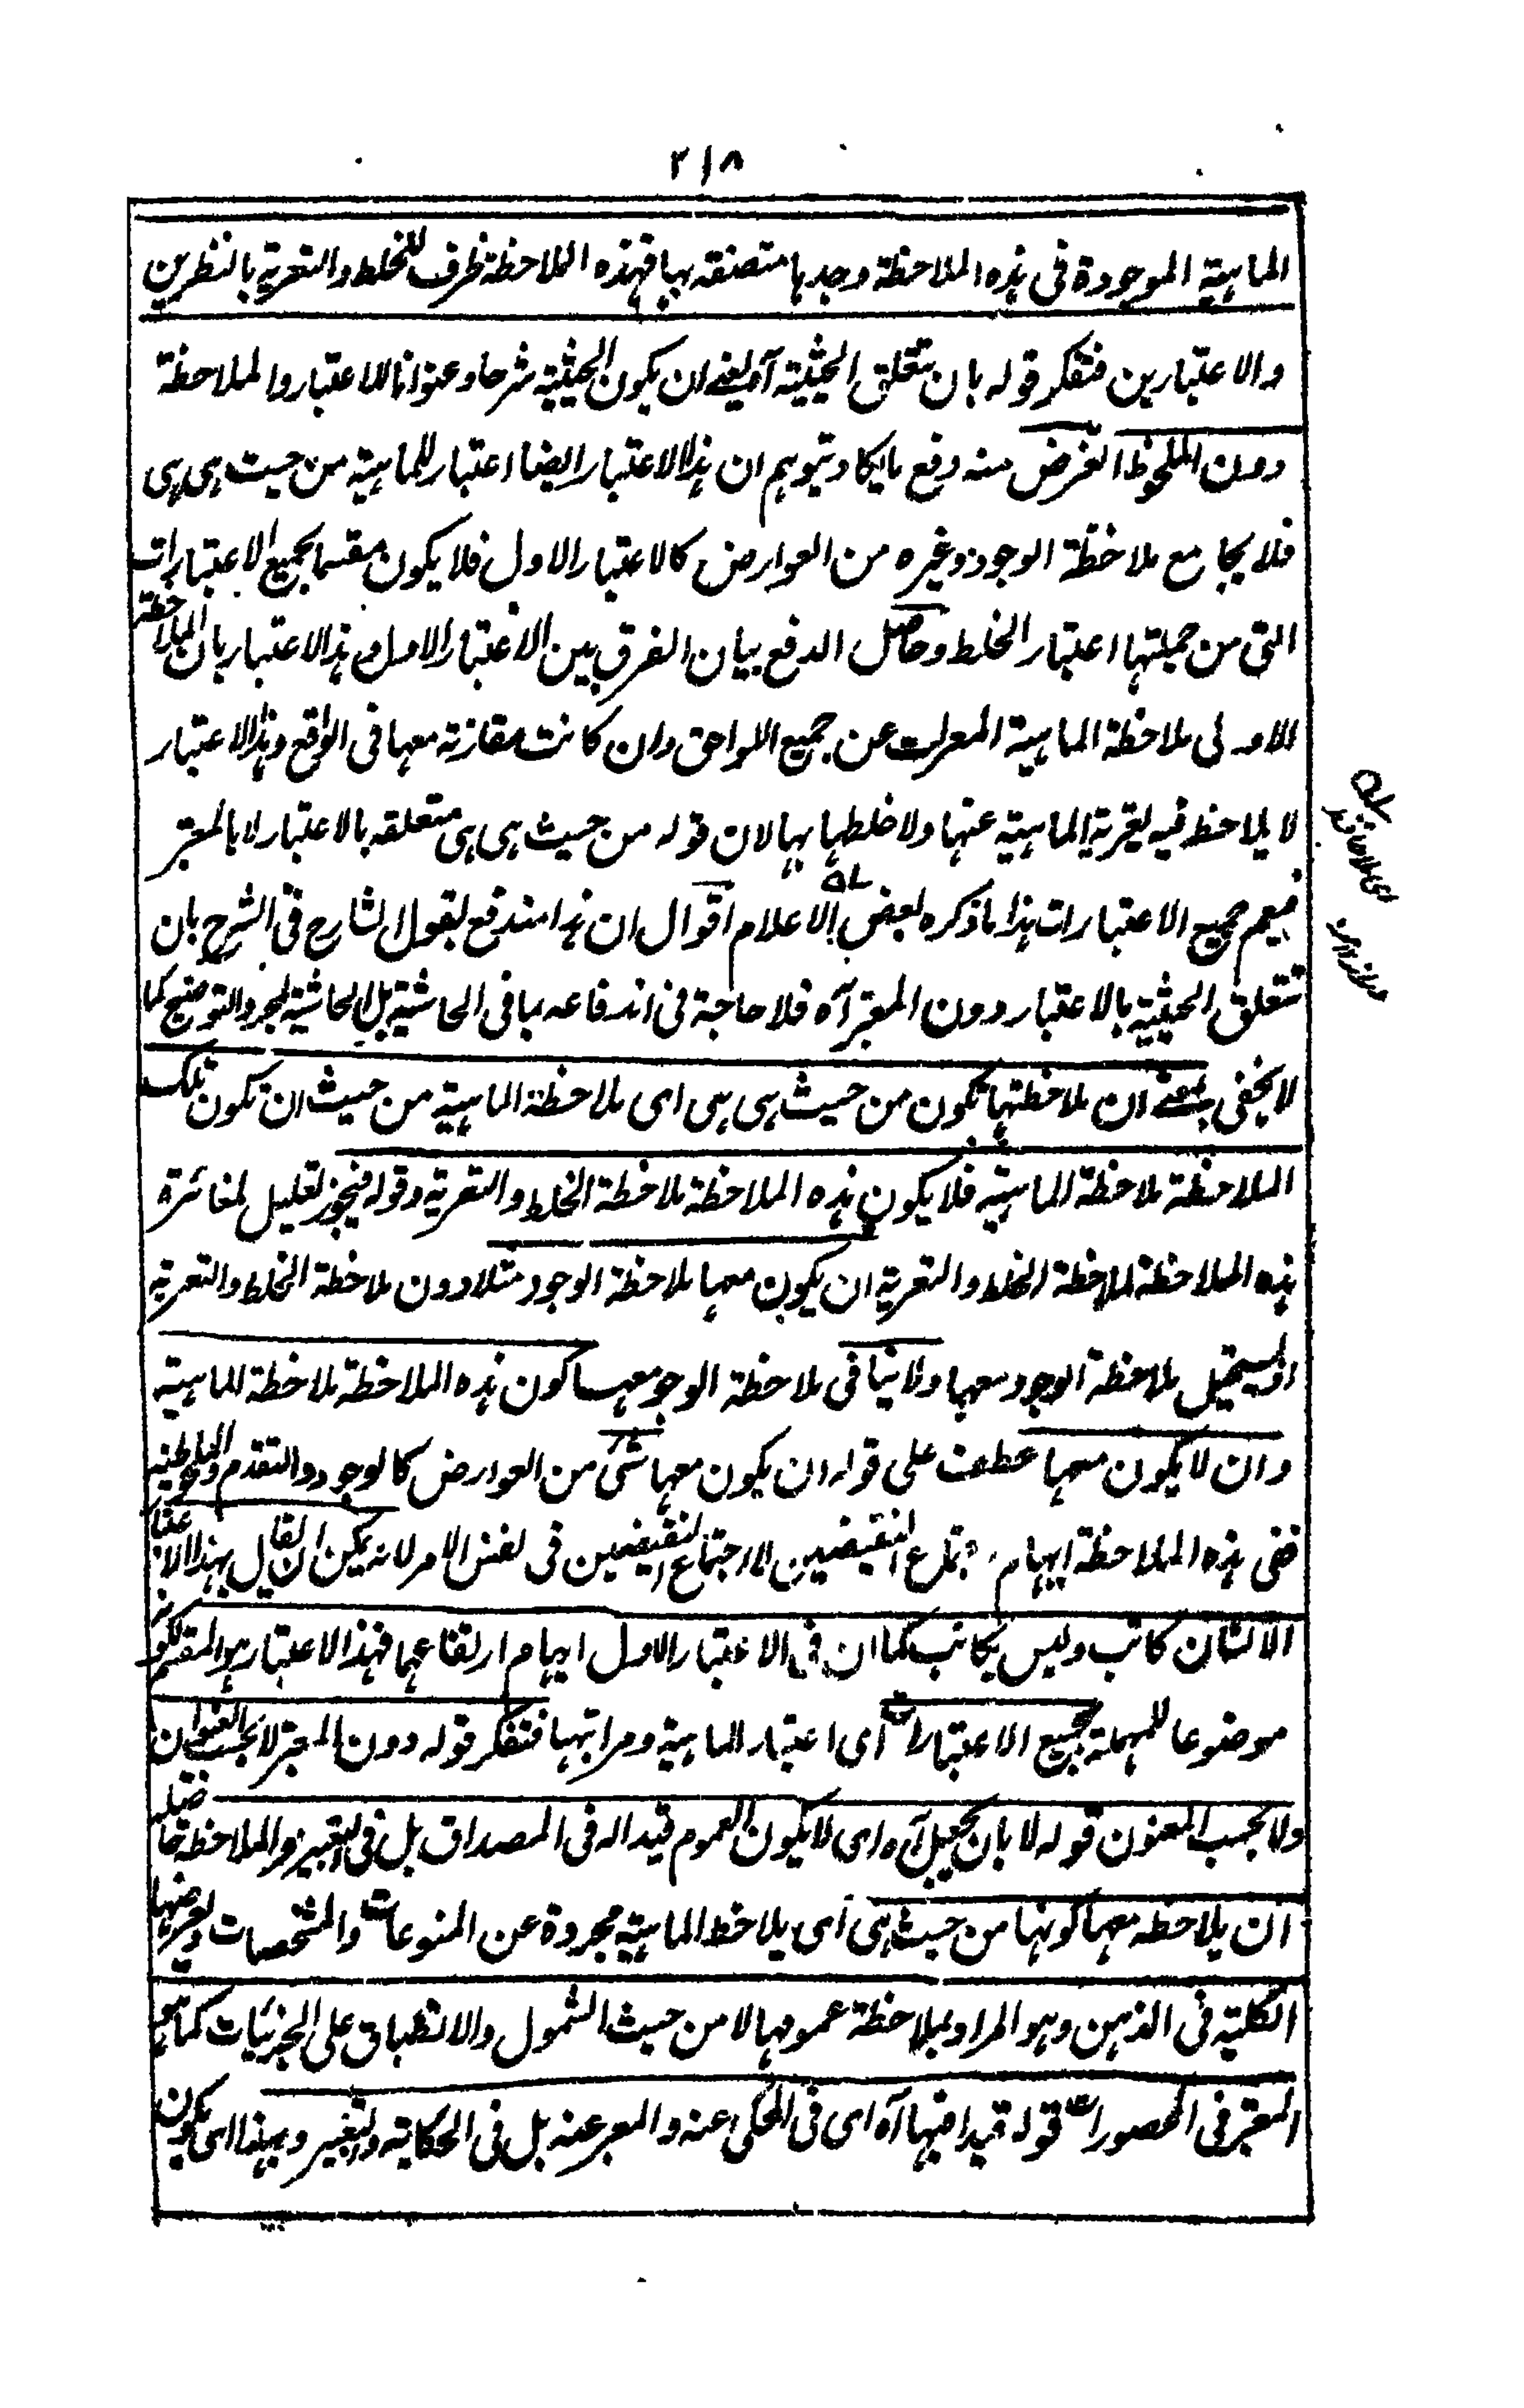 ٢١٨
الماهية الموجودة فى هذه الملاحظة وجدها متصفة بها فهذه الملاحظة ظرف للخلط والتعرية بالنظرين
والاعتبارين فتفكر قوله بان تتعلق الحيثية آه يعنے ان يكون الحيثية شرحا وعنوانا للاعتبار والملاحظة
دون الملحوظ الغرض منه دفع ما يكاد يتوهم ان هذا الاعتبار ايضا اعتبار للماهية من حيث هى هى
فلا يجامع ملاحظة الوجود وغيره من العوارض كالاعتبار الاول فلا يكون مقسما لجميع الاعتبارات
التى من جملتها اعتبار الخلط وحاصل الدفع بيان الفرق بين الاعتبار الاول وهذا الاعتبار بان الملاحظة
الاولى ملاحظة الماهية المعراة عن جميع اللواحق وان كانت مقارنة معها فى الواقع وهذا الاعتبار
لا يلاحظ فيه تعرية الماهية عنها ولا خلطها بها لان قوله من حيث هى هى متعلقه بالاعتبار لا بالمعتبر
فيعم جميع الاعتبارات هذا ما ذكره بعض الاعلام اقول ان هذا مندفع بقول الشارح فى الشرح بان
تتعلق الحيثية بالاعتبار دون المعتبر آه فلا حاجة فى اندفاعه بما فى الحاشية بل الحاشية لمجرد التوضيح كما
لا يخفى بمعنے ان ملاحظتها تكون من حيث هى هى اى ملاحظة الماهية من حيث ان تكون تلك
الملاحظة ملاحظة الماهية فلا يكون هذه الملاحظة ملاحظة الخلط والتعرية وقوله فيجوز تعليل لمغائرة
هذه الملاحظة لملاحظة الخلط والتعرية ان يكون معها ملاحظة الوجود مثلا دون ملاحظة الخلط والتعرية
او يستحيل ملاحظة الوجود معها ولا ينافى ملاحظة الوجود معها كون هذه الملاحظة ملاحظة للماهية
وان لا يكون معها عطف على قوله ان يكون معها شئ من العوارض كالوجود والتقدم والخلطية
ففى هذه الملاحظة ايهام اجتماع النقيضين لا اجتماع النقيضين فى نفس الامر لانه يمكن ان يقال بهذا الاعتبار
الانسان كاتب وليس بكاتب كما ان فى الاعتبار الاول ايهام ارتفاعهما فهذا الاعتبار هو المقسم لكونه
موضوعا للمهملة لجميع الاعتبارات اى اعتبار الماهية ومراتبها فتفكر قوله دون المعتبر لا بحسب العنوان
ولا بحسب المعنون قوله لا بان يجعل آه اى لا يكون العموم قيدا له فى المصداق بل فى التعبير والملاحظة
ان يلاحظه معها كونها من حيث هى اى يلاحظ الماهية مجردة عن المنوعات والمشخصات ويعرضها
الكلية فى الذهن وهو المراد بملاحظة عمومها لا من حيث الشمول والانطباق على الجزئيات كما هو
المعتبر فى المحصورات قوله قيدا فيها آه اى فى المحكى عنه والمعبر عنه بل فى الحكاية والتعبير وبهذا اى يكون